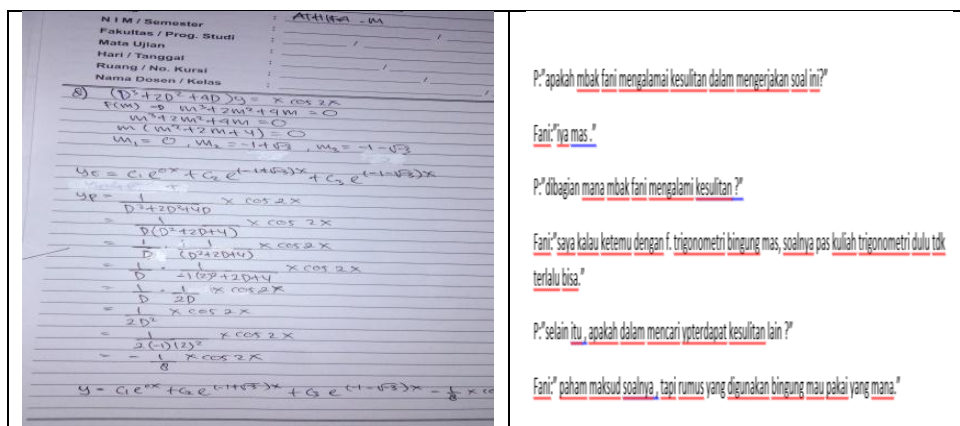 NIM / Semester : ATHIFA . M
Fakultas / Prog. Studi : /
Mata Ujian :
Hari / Tanggal : /
Ruang / No. Kursi : /
Nama Dosen / Kelas : /
2) (D³ + 2D² + 4D)y = x cos 2x
F(m) → m³ + 2m² + 4m = 0
m³ + 2m² + 4m = 0
m (m² + 2m + 4) = 0
m₁ = 0 , m₂ = -1+√-3 , m₃ = -1-√-3
yc = c₁ e^ox + c₂ e^(-1+√-3)x + c₃ e^(-1-√-3)x
yp = 1/(D³+2D²+4D) x cos 2x
= 1/(D(D²+2D+4)) x cos 2x
= 1/D . 1/(D²+2D+4) x cos 2x
= 1/D . 1/(-1(2)²+2D+4) x cos 2x
= 1/D . 1/2D x cos 2x
= 1/2D² x cos 2x
= 1/(2(-1)(2)²) x cos 2x
= - 1/8 x cos 2x
y = c₁e^ox + c₂ e^(-1+√-3)x + c₃ e^(-1-√-3)x - 1/8 x co
P:"apakah mbak fani mengalamai kesulitan dalam mengerjakan soal ini?"
Fani:"iya mas ."
P:"dibagian mana mbak fani mengalami kesulitan ?"
Fani:"saya kalau ketemu dengan f. trigonometri bingung mas, soalnya pas kuliah trigonometri dulu tdk
terlalu bisa."
P:"selain itu , apakah dalam mencari ypterdapat kesulitan lain ?"
Fani:" paham maksud soalnya , tapi rumus yang digunakan bingung mau pakai yang mana."